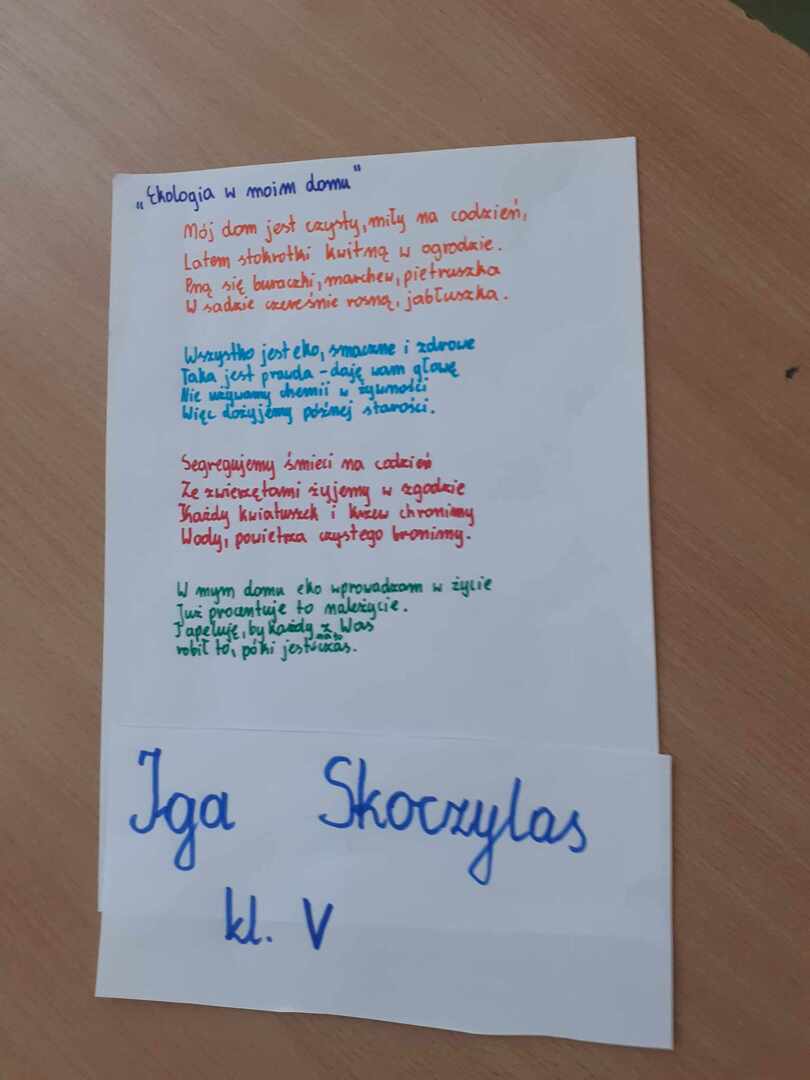 „Ekologia w moim domu"
Mój dom jest czysty, miły na codzień,
Latem stokrotki kwitną w ogrodzie.
Pną się buraczki, marchew, pietruszka
W sadzie czereśnie rosną, jabłuszka.
Wszystko jest eko, smaczne i zdrowe
Taka jest prawda - daję wam głowę
Nie używamy chemii w żywności
Więc dożyjemy późnej starości.
Segregujemy śmieci na codzień
Ze zwierzętami żyjemy w zgodzie
Każdy kwiatuszek i krzew chronimy
Wody, powietrza czystego bronimy.
W mym domu eko wprowadzam w życie
Już procentuje to należycie.
I apeluję, by każdy z Was
robił to, póki jest na to czas.
Iga Skoczylas
kl. V